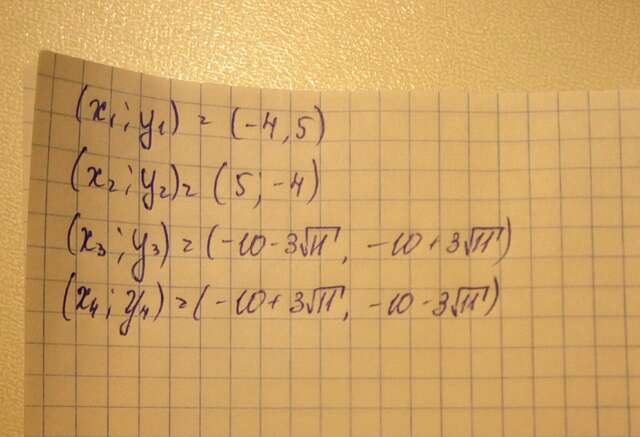 (x₁; y₁) = (-4, 5)
(x₂; y₂) = (5; -4)
(x₃; y₃) = (-10-3√11, -10+3√11)
(x₄; y₄) = (-10+3√11, -10-3√11)